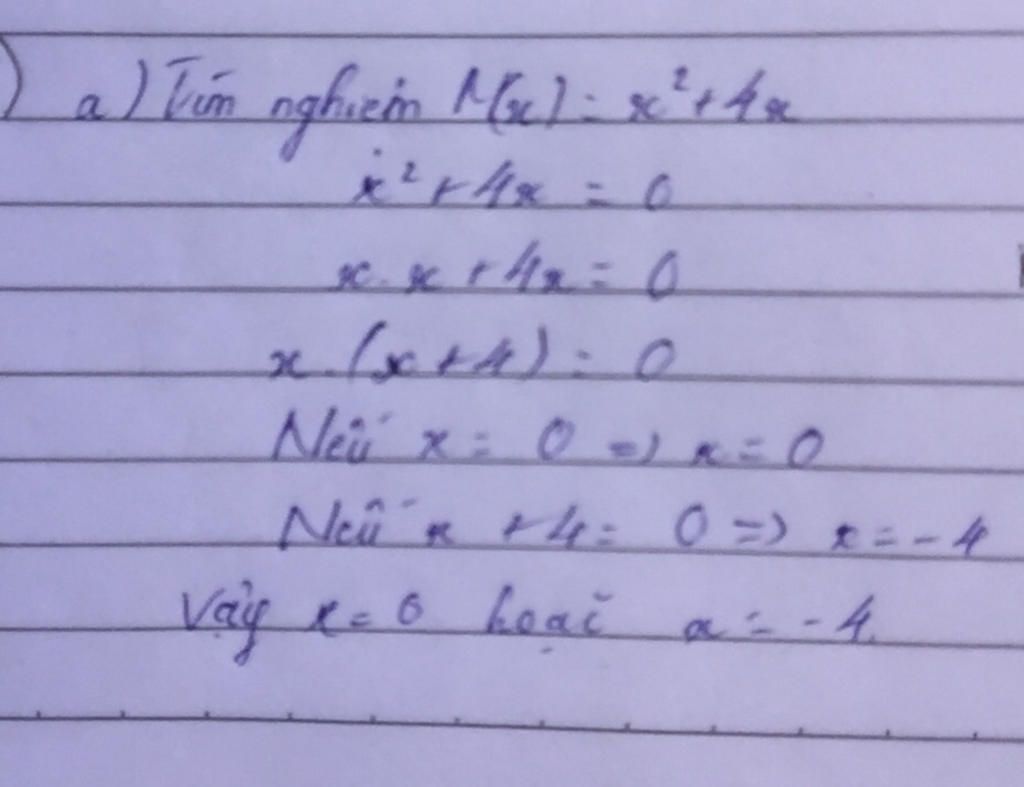 a) Tìm nghiệm M(x) = x² + 4x
x² + 4x = 0
x . x + 4x = 0
x . (x + 4) = 0
Nếu x = 0 => x = 0
Nếu x + 4 = 0 => x = -4
Vậy x = 0 hoặc x = -4.